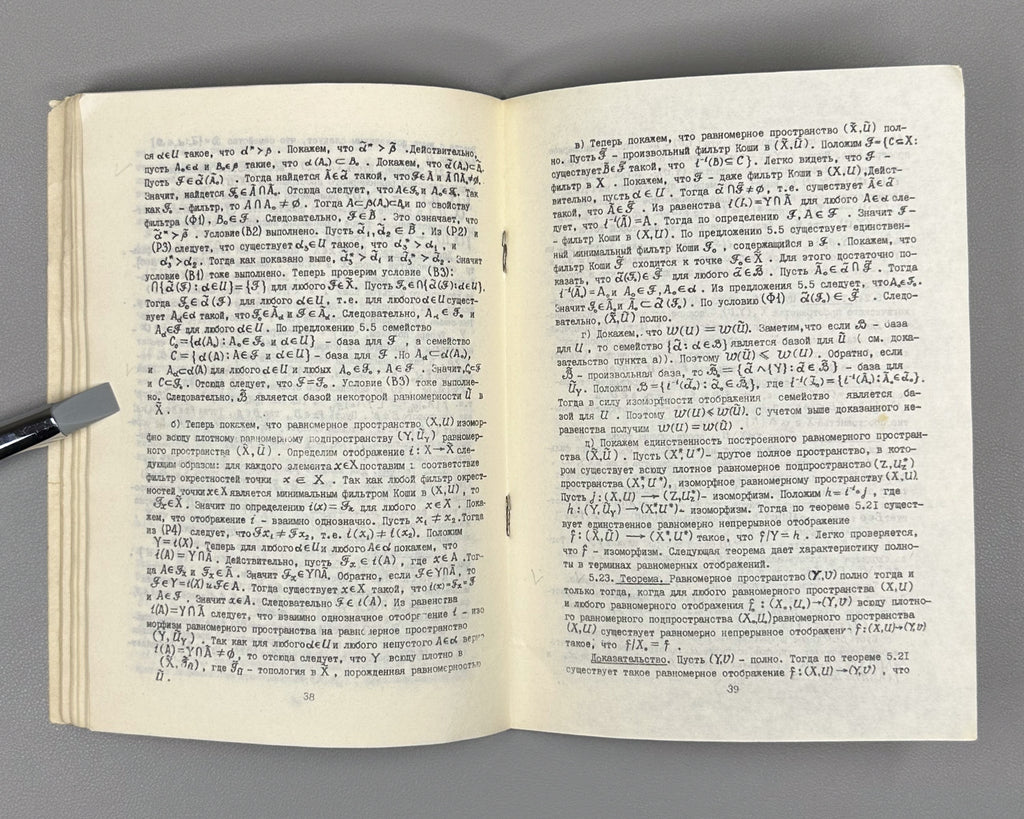 ся α∈U такое, что α*>β. Покажем, что α̃*>β̃. Действительно,
пусть A₀∈α и B₀∈β такие, что α(A₀)⊂B₀. Докажем, что α̃(Ã₀)⊂B̃₀
Пусть ℱ∈α̃(Ã₀). Тогда найдется Ã∈α̃ такой, что ℱ∈Ã и Ã∩Ã₀≠∅.
Значит, найдется ℱ₀∈Ã∩Ã₀. Отсюда следует, что A∈ℱ₀ и A₀∈ℱ₀. Так
как ℱ₀ - фильтр, то A∩A₀≠∅. Тогда A⊂ по свойству
фильтра (Ф1), B₀∈ℱ. Следовательно, ℱ∈B̃₀. Это означает, что
α̃*>β̃. Условие (B2) выполнено. Пусть α̃₁,α̃₂∈ℬ̃. Из (P2) и
(P3) следует, что существует α₃∈U такое, что α₃*>α₁, и
α₃*>α₂. Тогда как показано выше, α̃₃*>α̃₁ и α̃₃*>α̃₂. Значит
условие (B1) тоже выполнено. Теперь проверим условие (B3):
∩{α̃(ℱ):α∈U}={ℱ} для любого ℱ∈X̃. Пусть ℱ₀∈∩{α̃(ℱ):α∈U}.
Тогда ℱ₀∈α̃(ℱ) для любого α∈U, т.е. для любого α∈U сущест-
вует A_α∈α такой, что ℱ₀∈Ã_α и ℱ∈Ã_α. Следовательно, A_α∈ℱ₀ и
A_α∈ℱ для любого α∈U. По предложению 5.5 семейство
C₀={α(A₀):A₀∈ℱ₀ и α∈U} - база для ℱ₀, а семейство
C={α(A):A∈ℱ и α∈U} - база для ℱ. Но A_α⊂α(A₀),
и A_α⊂α(A) для любого α∈U и любых A₀∈ℱ₀, A∈ℱ. Значит, C₀⊂ℱ
и C⊂ℱ₀. Отсюда следует, что ℱ=ℱ₀. Условие (B3) тоже выполне-
но. Следовательно, ℬ̃ является базой некоторой равномерности Ũ в
X̃.
б) Теперь покажем, что равномерное пространство (X,U) изомор-
фно всюду плотному равномерному подпространству (Y,Ũ_Y) равномер-
ного пространства (X̃,Ũ). Определим отображение i:X→X̃ сле-
дующим образом: для каждого элемента x∈X поставим в соответствие
фильтр окрестностей точки x∈X. Так как любой фильтр окрест-
ностей точки x∈X является минимальным фильтром Коши в (X,U), то
ℱₓ∈X̃. Значит по определению i(x)=ℱₓ для любого x∈X. Пока-
жем, что отображение i - взаимно однозначно. Пусть x₁≠x₂. Тогда
из (P4) следует, что ℱx₁≠ℱx₂, т.е. i(x₁)≠i(x₂). Положим
Y=i(X). Теперь для любого α∈U и любого A∈α покажем, что
i(A)=Y∩Ã. Действительно, пусть ℱₓ∈i(A), где x∈A. Тог-
да A∈ℱₓ и ℱₓ∈Ã. Значит ℱₓ∈Y∩Ã. Обратно, если ℱ∈Y∩Ã, то
ℱ∈Y=i(X) и ℱ∈Ã. Тогда существует x∈X такой, что i(x)=ℱₓ=ℱ
и A∈ℱ. Значит x∈A. Следовательно ℱ∈i(A). Из равенства
i(A)=Y∩Ã следует, что взаимно однозначное отображение i - изо
морфизм равномерного пространства на равномерное пространство
(Y,Ũ_Y). Так как для любого α∈U и любого непустого A∈α верно
i(A)=Y∩Ã≠∅, то отсюда следует, что Y всюду плотно в
(X̃,𝒯_Ũ), где 𝒯_Ũ - топология в X̃, порожденная равномерностью
Ũ.
38
в) Теперь покажем, что равномерное пространство (X̃,Ũ) пол-
но. Пусть ℱ̃ - произвольный фильтр Коши в (X̃,Ũ). Положим ℱ={C⊂X:
существует B̃∈ℱ̃ такой, что i⁻¹(B̃)⊂C}. Легко видеть, что ℱ -
фильтр в X. Покажем, что ℱ - даже фильтр Коши в (X,U). Дейст-
вительно, пусть α∈U. Тогда α̃∩ℱ̃≠∅, т.е. существует Ã∈α̃
такой, что Ã∈ℱ̃. Из равенства i(A)=Y∩Ã для любого A∈α сле-
дует, что i⁻¹(Ã)=A. Тогда по определению ℱ, A∈ℱ. Значит ℱ-
- фильтр Коши в (X,U). По предложению 5.5 существует единствен-
ный минимальный фильтр Коши ℱ₀, содержащийся в ℱ. Покажем, что
фильтр Коши ℱ̃ сходится к точке ℱ₀∈X̃. Для этого достаточно по-
казать, что α̃(ℱ₀)∈ℱ̃ для любого α̃∈ℬ̃. Пусть Ã₀∈α̃∩ℱ̃. Тогда
i⁻¹(Ã₀)=A₀ и A₀∈ℱ, A₀∈α. Из предложения 5.5 следует, что A₀∈ℱ₀.
Значит ℱ₀∈Ã₀ и Ã₀⊂α̃(ℱ₀). По условию (Ф1) α̃(ℱ₀)∈ℱ̃. Следо-
вательно, (X̃,Ũ) полно.
г) Докажем, что w(U)=w(Ũ). Заметим, что если ℬ - база
для U, то семейство {α̃:α∈ℬ} является базой для Ũ (см. дока-
зательство пункта а)). Поэтому w(Ũ)⩽w(U). Обратно, если
ℬ̃ - произвольная база, то ℬ̃₀={α̃∧{Y}:α̃∈ℬ̃} - база для
Ũ_Y. Положим ℬ={i⁻¹(α̃₀):α̃₀∈ℬ̃₀}, где i⁻¹(α̃₀)={i⁻¹(Ã₀):Ã₀∈α̃₀}.
Тогда в силу изоморфности отображения семейство является ба-
зой для U. Поэтому w(U)⩽w(Ũ). С учетом выше доказанного не-
равенства получим w(U)=w(Ũ).
д) Покажем единственность построенного равномерного простран-
ства (X̃,Ũ). Пусть (X*,U*)- другое полное пространство, в кото-
ром существует всюду плотное равномерное подпространство (Z,U_Z*)
пространства (X*,U*), изоморфное равномерному пространству (X,U).
Пусть j:(X,U)→(Z,U_Z*)- изоморфизм. Положим h=i⁻¹∘j, где
h:(Y,Ũ_Y)→(X*,U*)- изоморфизм. Тогда по теореме 5.21 сущест-
вует единственное равномерно непрерывное отображение
f:(X̃,Ũ)→(X*,U*) такое, что f/Y=h. Легко проверяется,
что f - изоморфизм. Следующая теорема дает характеристику полно-
ты в терминах равномерных отображений.
5.23. Теорема. Равномерное пространство (Y,V) полно тогда и
только тогда, когда для любого равномерного пространства (X,U)
и любого равномерного отображения f₀:(X₀,U₀)→(Y,V) всюду плотно-
го равномерного подпространства (X₀,U₀) равномерного пространства
(X,U) существует равномерно непрерывное отображение f:(X,U)→(Y,V)
такое, что f/X₀=f.
Доказательство. Пусть (Y,V) - полно. Тогда по теореме 5.21
существует такое равномерное отображение f:(X,U)→(Y,V), что
39